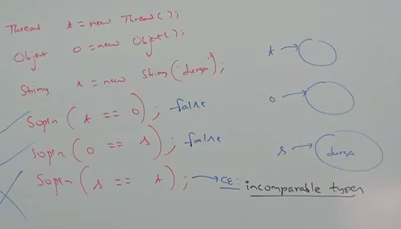 Thread t = new Thread();
Object o = new Object();
String s = new String("durga");
Sopln(t == o); → false
Sopln(o == s); → false
Sopln(s == t); → CE: incomparable types
t →
o →
s → durga